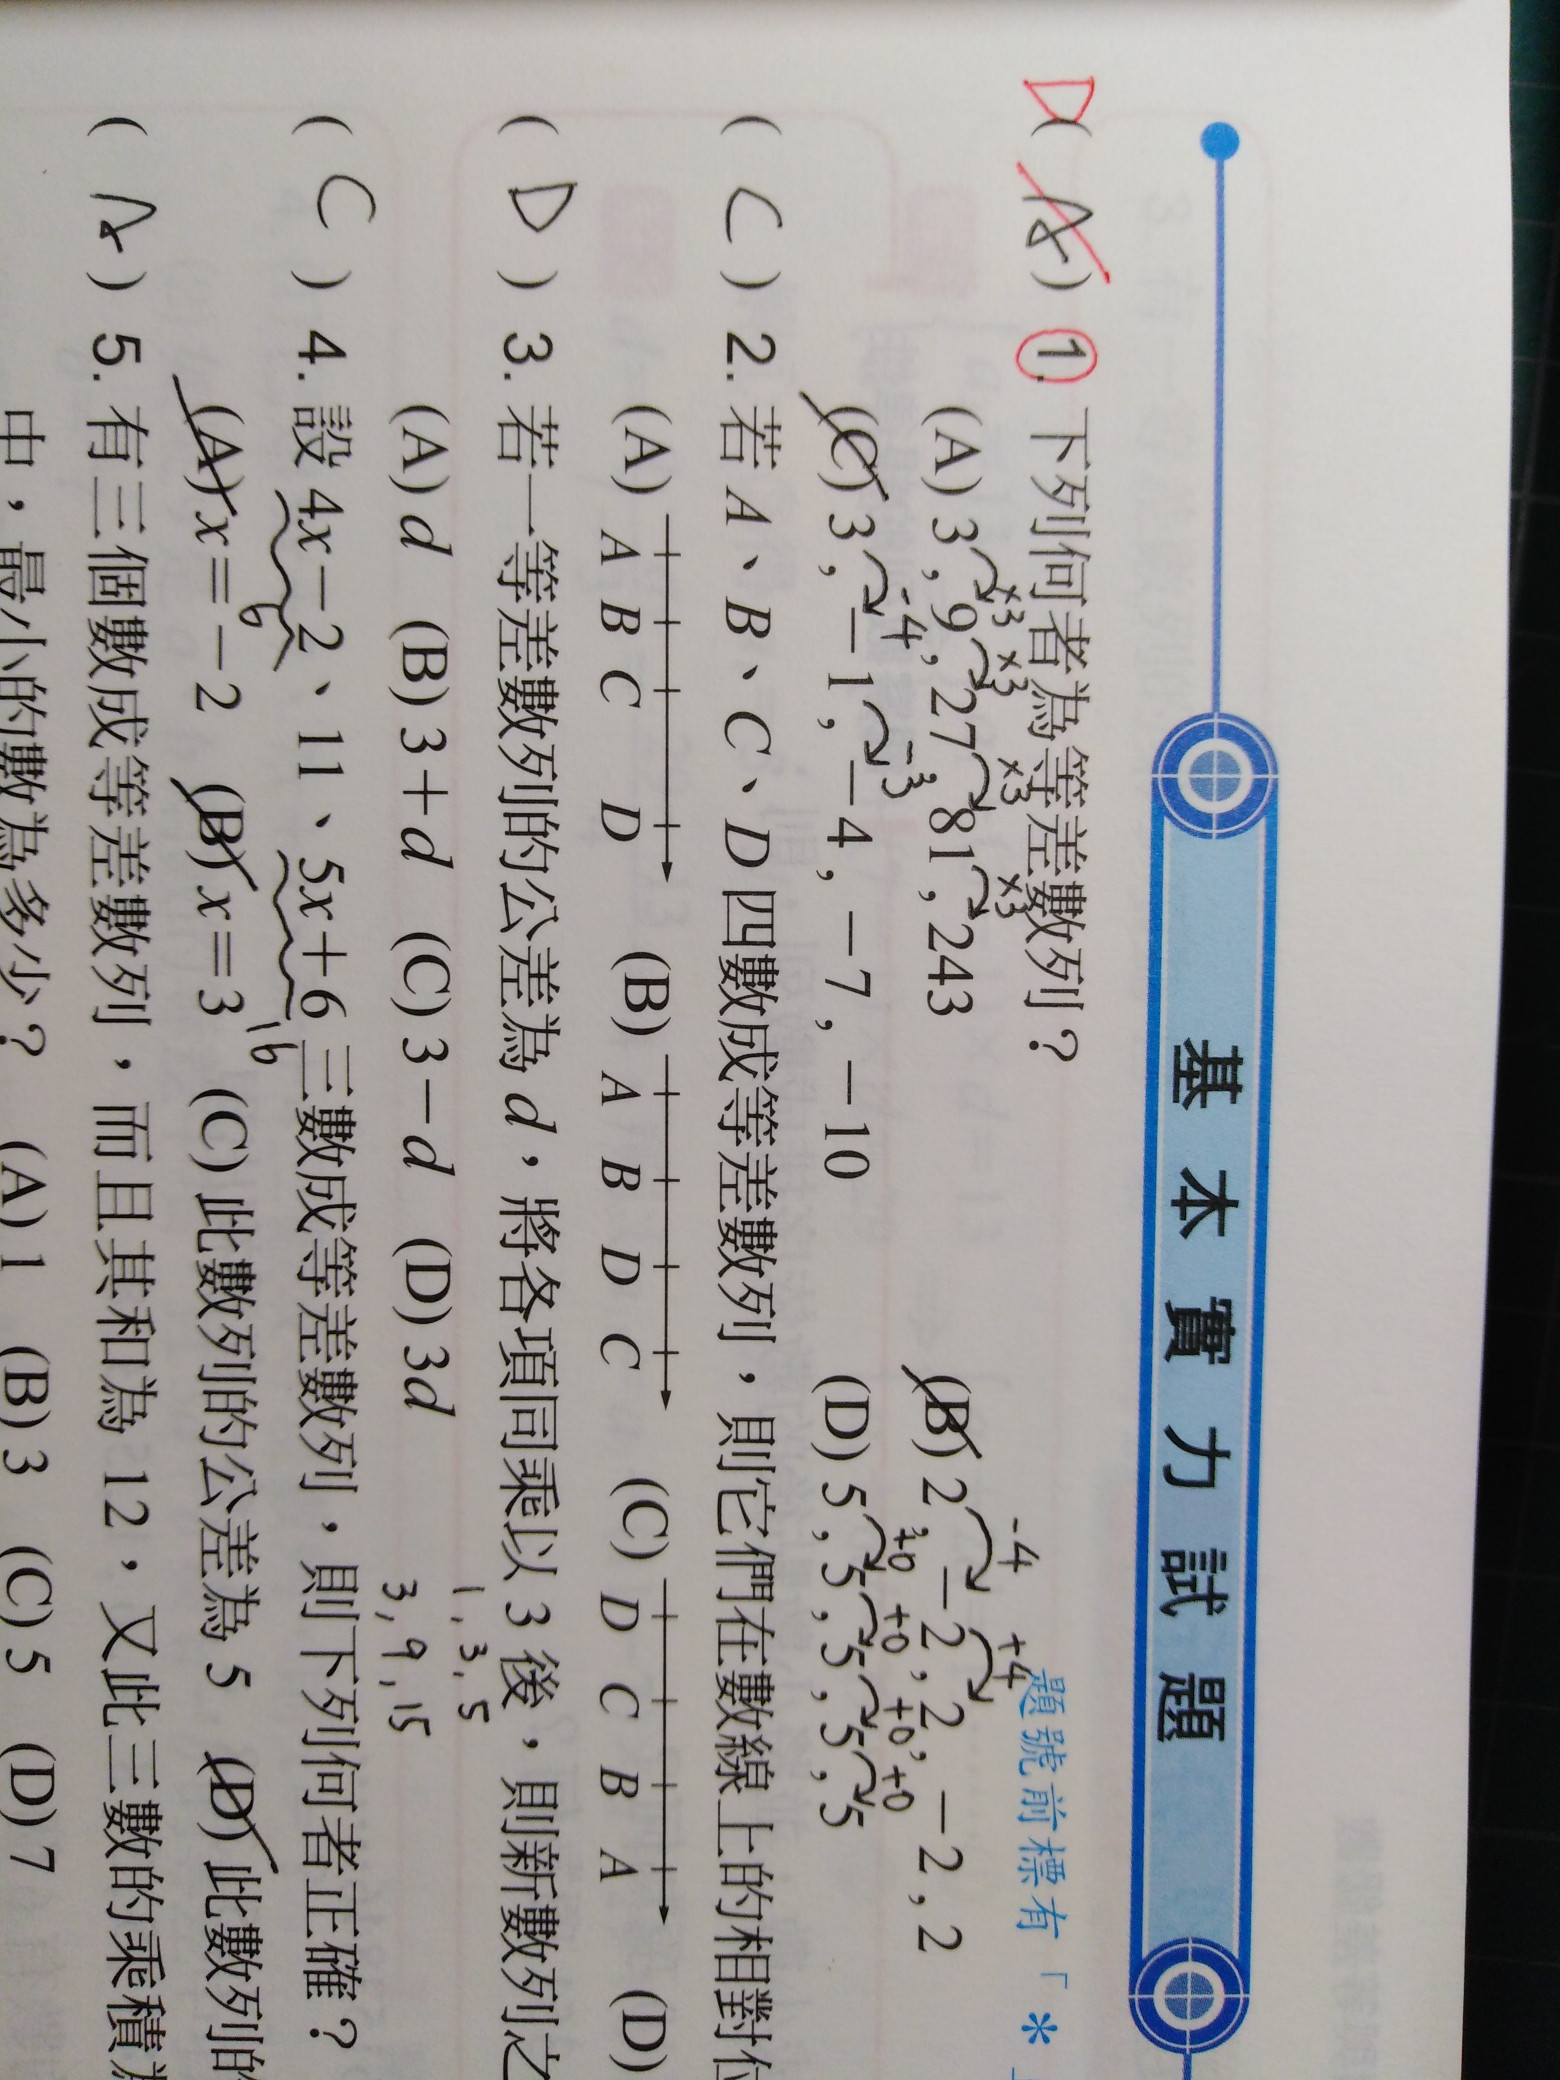 基本實力試題
題號前標有「*
D(A) 1. 下列何者為等差數列？
×3 ×3 ×3 ×3
(A) 3 , 9 , 27 , 81 , 243
-4 +4
(B) 2 , －2 , 2 , －2 , 2
-4 -3
(C) 3 , －1 , －4 , －7 , －10
+0 +0 +0 +0
(D) 5 , 5 , 5 , 5 , 5
( C ) 2. 若 A、B、C、D 四數成等差數列，則它們在數線上的相對位
(A) A B C D (B) A B D C (C) D C B A (D)
( D ) 3. 若一等差數列的公差為 d，將各項同乘以 3 後，則新數列之
1, 3, 5
(A) d (B) 3＋d (C) 3－d (D) 3d
3, 9, 15
( C ) 4. 設 4x－2、11、5x＋6 三數成等差數列，則下列何者正確？
6 16
(A) x＝－2 (B) x＝3 (C) 此數列的公差為 5 (D) 此數列的
( A ) 5. 有三個數成等差數列，而且其和為 12，又此三數的乘積為
中，最小的數為多少？ (A) 1 (B) 3 (C) 5 (D) 7